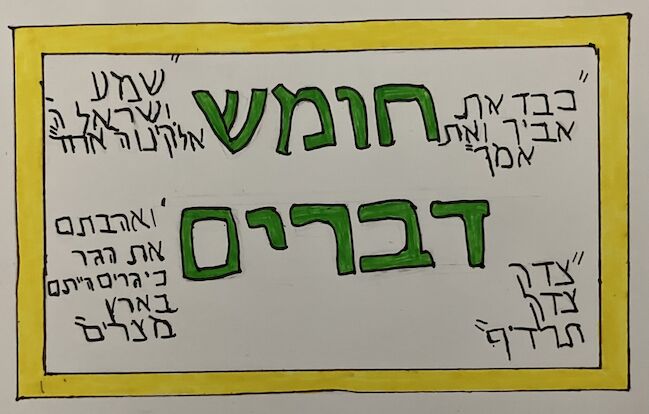 חומש
דברים
"כבד את
אביך ואת
אמך"
"שמע
ישראל ה'
אלקינו ה' אחד"
"ואהבתם
את הגר
כי גרים הייתם
בארץ
מצרים"
"צדק
צדק
תרדוף"